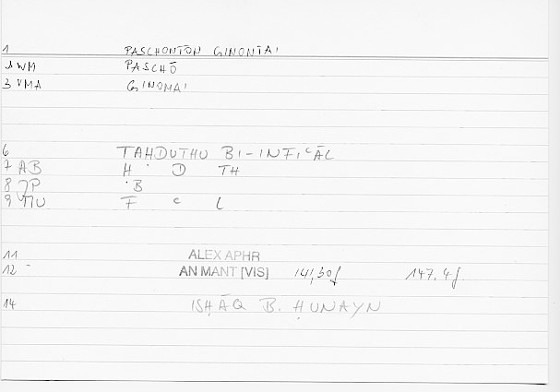 1 PASCHONTŌN GINONTAI
1 WM PASCHŌ
3 VMA GINOMAI
6 TAHDUTHU BI-INFIᶜĀL
7 AB Ḥ D TH
8 JP B
9 MU F ᶜ L
11 ALEX APHR
12 AN MANT [VIS] 141,30f 147.4f
14 ISḤĀQ B. ḤUNAYN